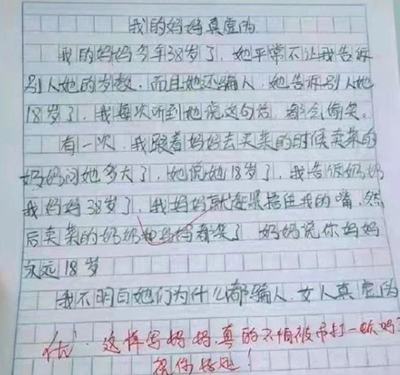 我的妈妈真虚伪
我的妈妈今年38岁了，她平常不让我告诉
别人她的岁数，而且她还骗人，她告诉别人她
18岁了，我每次听到她说这句话，都会偷笑。
有一次，我跟着妈妈去买菜的时候卖菜的
奶奶问她多大了，她说她18岁了，我告诉奶奶
我妈妈38岁了，我妈妈就赶紧捂住我的嘴，然
后卖菜的奶奶和妈妈都笑了 奶奶说你妈妈
永远18岁
我不明白她们为什么都骗人，女人真虚伪
优：这样写妈妈，真的不怕被吊打一顿吗？
祝你好运！